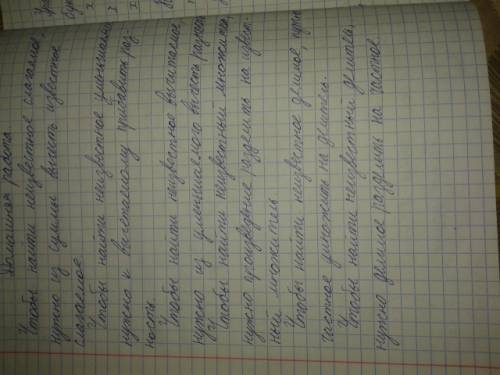 Домашняя работа
Чтобы найти неизвестное слагаемое,
нужно из суммы вычесть известное
слагаемое.
Чтобы найти неизвестное уменьшаемое,
нужно к вычитаемому прибавить раз-
ность
Чтобы найти неизвестное вычитаемое
нужно из уменьшаемого вычесть разность
Чтобы найти неизвестный множитель,
нужно произведение разделить на извест-
ный множитель
Чтобы найти неизвестное делимое, нужно
частное умножить на делитель.
Чтобы найти неизвестный делитель,
нужно делимое разделить на частное.